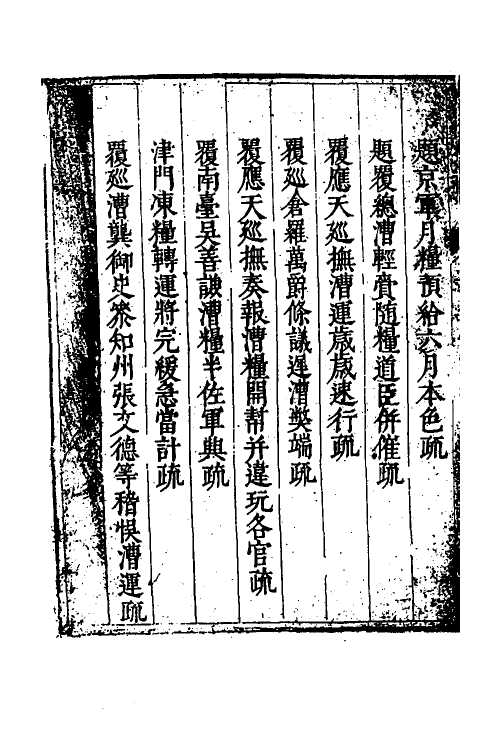 題京軍月糧預給六月本色疏
題覆總漕輕賫隨糧道臣併催疏
覆應天廵撫漕運歲歲速行疏
覆廵倉羅萬爵條議遲漕獘端疏
覆應天廵撫奏報漕糧開幫并違玩各官疏
覆南臺吳善謙漕糧半佐軍興疏
津門凍糧轉運將完緩急當計疏
覆廵漕龔御史叅知州張文德等稽悞漕運疏